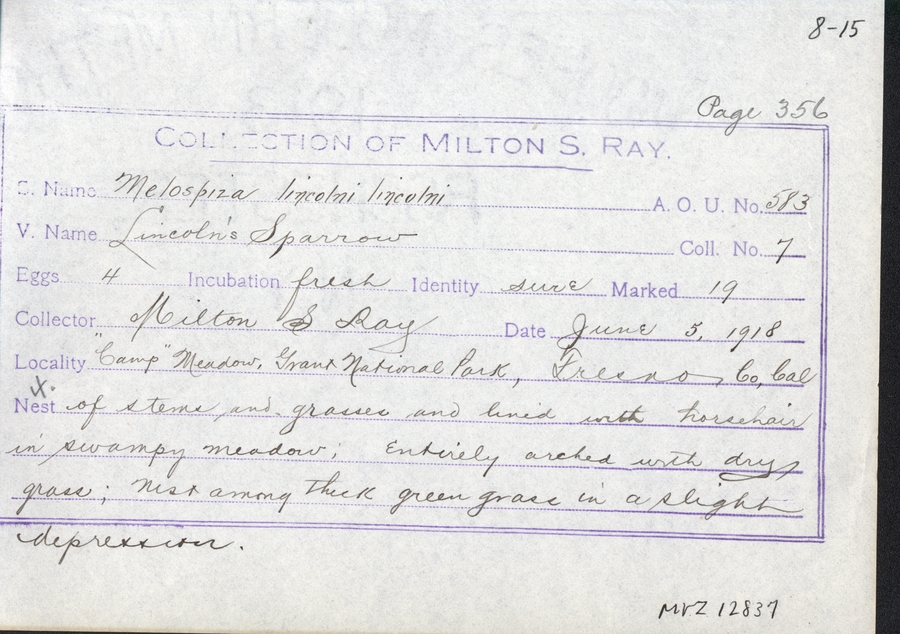 8-15
Page 356
COLLECTION OF MILTON S. RAY.
S. Name Melospiza lincolni lincolni A. O. U. No. 583
V. Name Lincoln's Sparrow Coll. No. 7
Eggs 4 Incubation fresh Identity sure Marked 19
Collector Milton S Ray Date June 5, 1918
Locality "Camp" Meadow, Grant National Park, Fresno Co, Cal
X.
Nest of stems and grasses and lined with horsehair
in swampy meadow; Entirely arched with dry
grass; nest among thick green grass in a slight
depression.
MVZ 12837